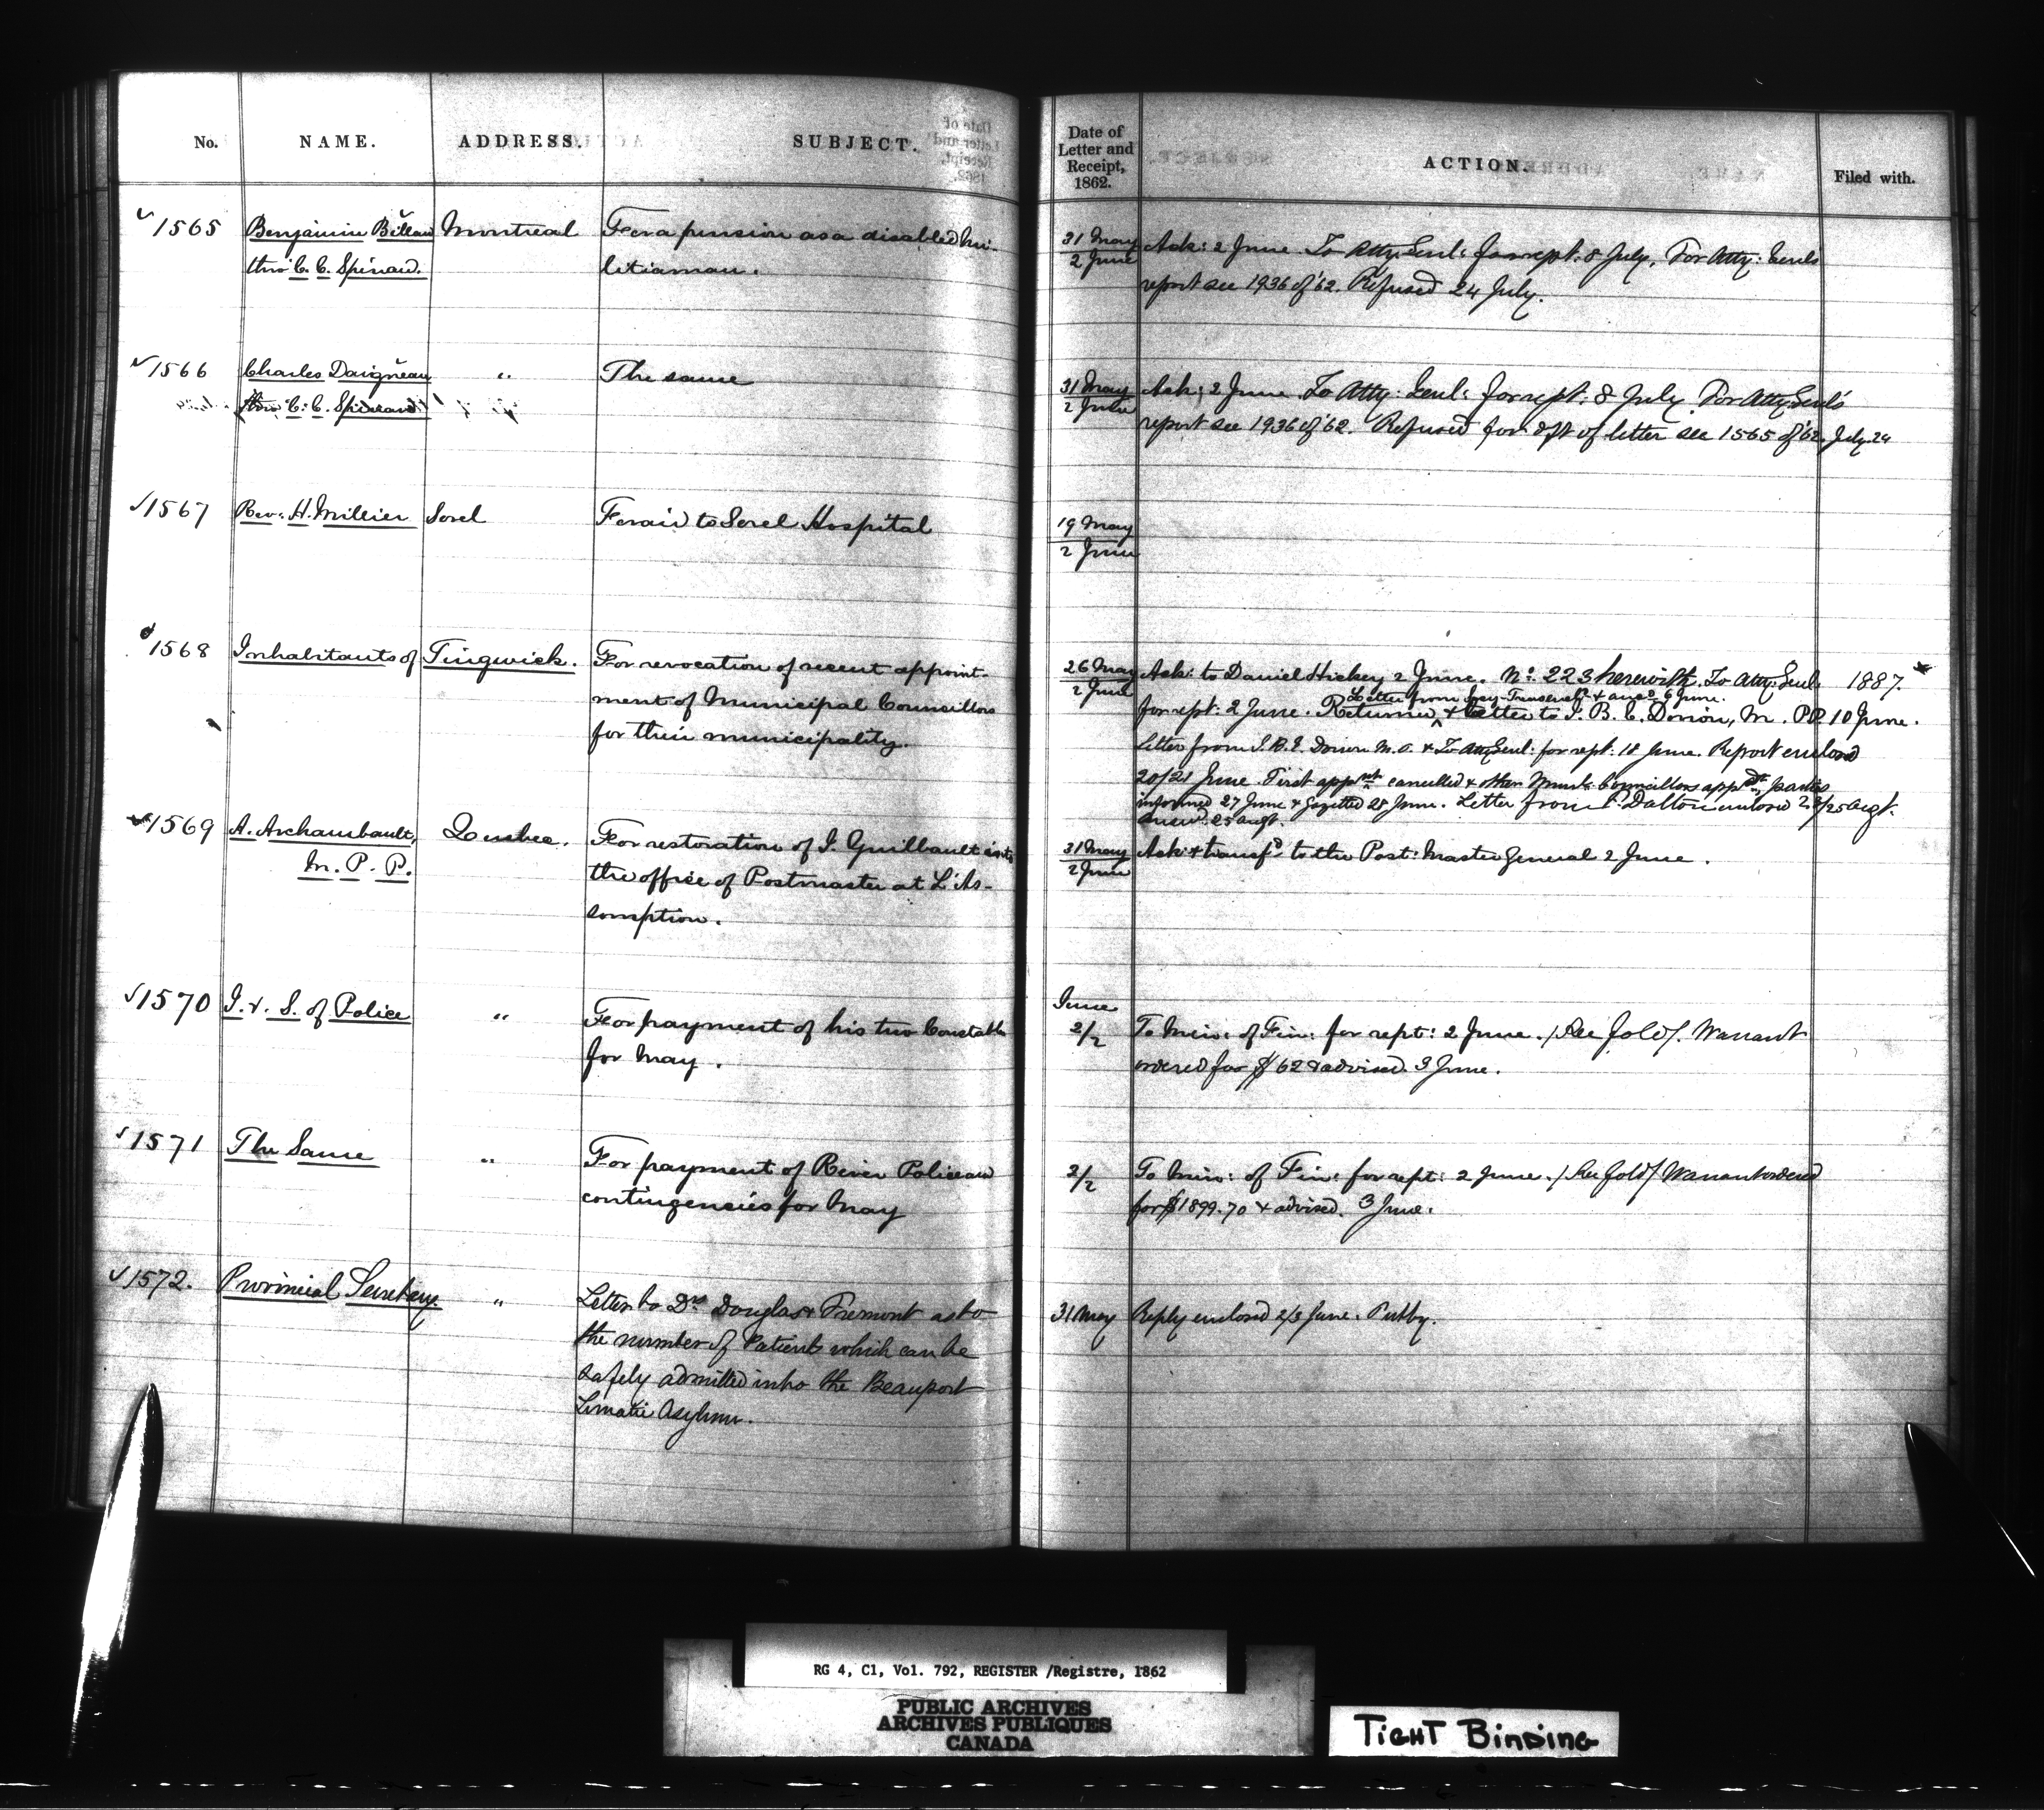 No. NAME. ADDRESS. SUBJECT.
Date of Letter and Receipt, 1862. ACTION. Filed with.
1565 Benjamin Montreal For a pension as a disabled mi-
thro' C. C. Spénard. litiaman.
31 May / 2 June Ack: 2 June. To Atty: Genl: for rept: 8 July. For Atty: Genl's
report see 1936 of '62. Refused 24 July.
1566 Charles Daigneau " The same
thro' C. C. Spénard
31 May / 2 June Ack: 2 June. To Atty: Genl: for rept: 8 July. For Atty: Genl's
report see 1936 of '62. Refused for dft of letter see 1565 of '62. July 24
1567 Rev: H. Millier Sorel For aid to Sorel Hospital
19 May / 2 June
1568 Inhabitants of Tingwick. For revocation of recent appoint-
ment of Municipal Councillors
for their municipality.
26 May / 2 June Ack: to Daniel Hickey 2 June. No: 223 herewith. To Atty: Genl: 1887.
Letter from & ansd 6 June.
for rept: 2 June. Returned & letter to J. B. E. Dorion, M. P.P. 10 June.
Letter from J. B. E. Dorion & To Atty Genl: for rept: 18 June. Report enclosed
20/21 June. First appnt cancelled & other Munl: Councillors appd parties
informed 27 June & gazetted 28 June. Letter from Dalton enclosed 25 Augt.
answd 25 augt.
1569 A. Archambault, Quebec. For restoration of J. Guilbault into
M. P. P. the office of Postmaster at L'As-
somption.
31 May / 2 June Ack: & transfd to the Post: Master General 2 June.
1570 I. & S. of Police " For payment of his two Constables
for May.
June
2/2 To Min: of Fin: for rept: 2 June. /See fold/. Warrant
ordered for $62 & advised. 3 June.
1571 The Same " For payment of River Police and
contingencies for May
2/2 To Min: of Fin: for rept: 2 June. /See fold/ Warrant ordered
for $1899.70 & advised. 3 June.
1572. Provincial Secretary. " Letter to Drs Douglas & Fremont as to
the number of Patients which can be
safely admitted into the Beauport
Lunatic Asylum.
31 May Reply enclosed 2/3 June. Putby.
RG 4, C1, Vol. 792, REGISTER /Registre, 1862
PUBLIC ARCHIVES
ARCHIVES PUBLIQUES
CANADA
TIGHT BINDING